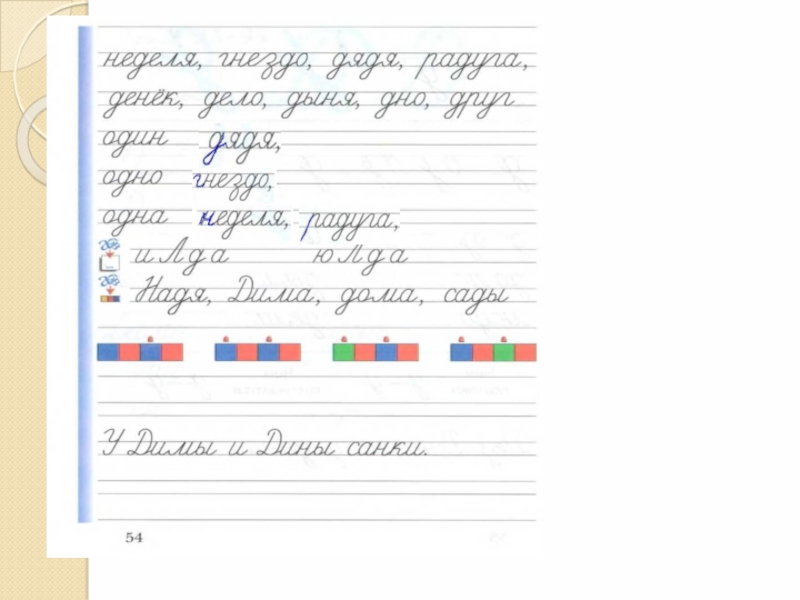 неделя, гнездо, дядя, радуга,
денёк, дело, дыня, дно, друг
один дядя,
одно гнездо,
одна неделя, радуга,
и Л д а ю Л д а
Надя, Дима, дома, сады
У Димы и Дины санки.
54